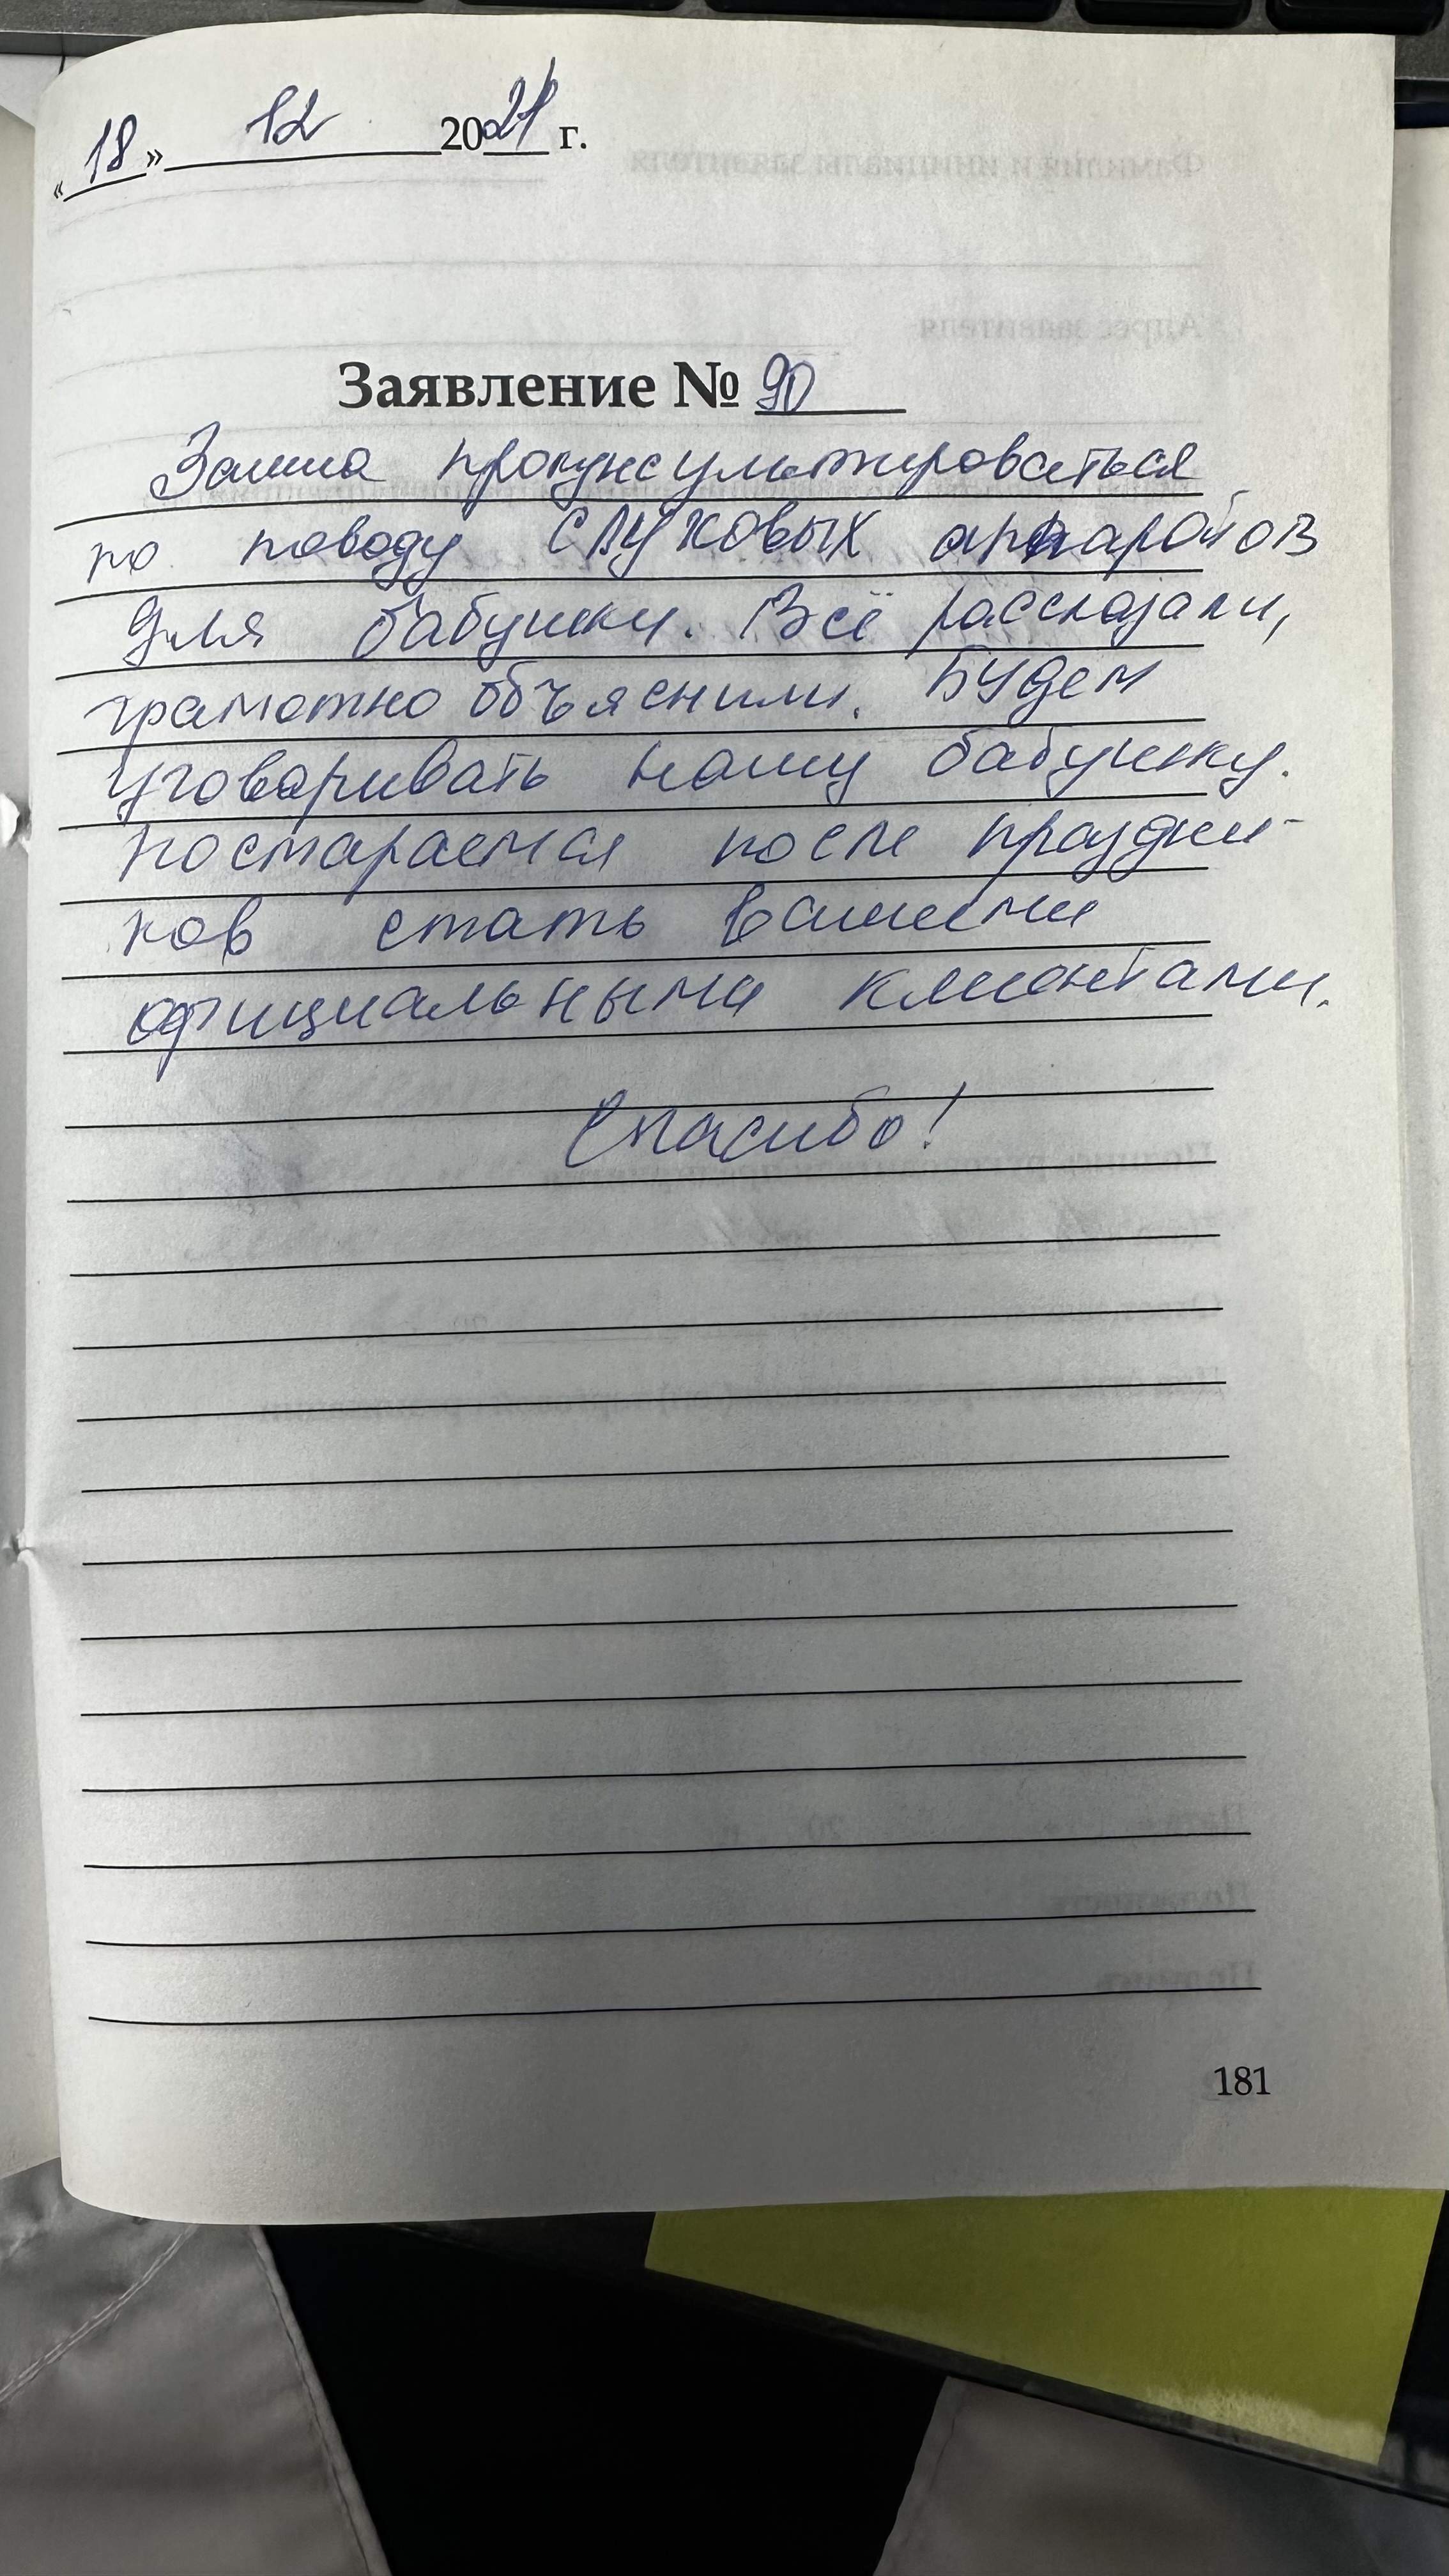 «18» 12 2021 г.
Заявление № 90
Зашла проконсультироваться
по поводу слуховых аппаратов
для бабушки. Всё рассказали,
грамотно объяснили. Будем
уговаривать нашу бабушку.
Постараемся после праздни-
ков стать вашими
официальными клиентами.
Спасибо!
181